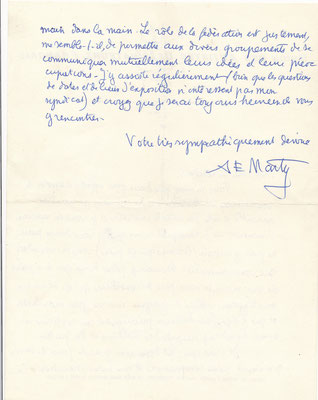 main dans la main. Le rôle de la fédération est justement,
me semble-t-il, de permettre aux divers groupements de se
communiquer mutuellement leurs idées et leurs préoc
cupations. J'y assiste régulièrement (bien que les questions
de dates et de lieux d'exposition n'intéressent pas mon
syndicat) et croyez que je serai toujours heureux de vous
y rencontrer.
Votre très sympathiquement dévoué
A E Marty